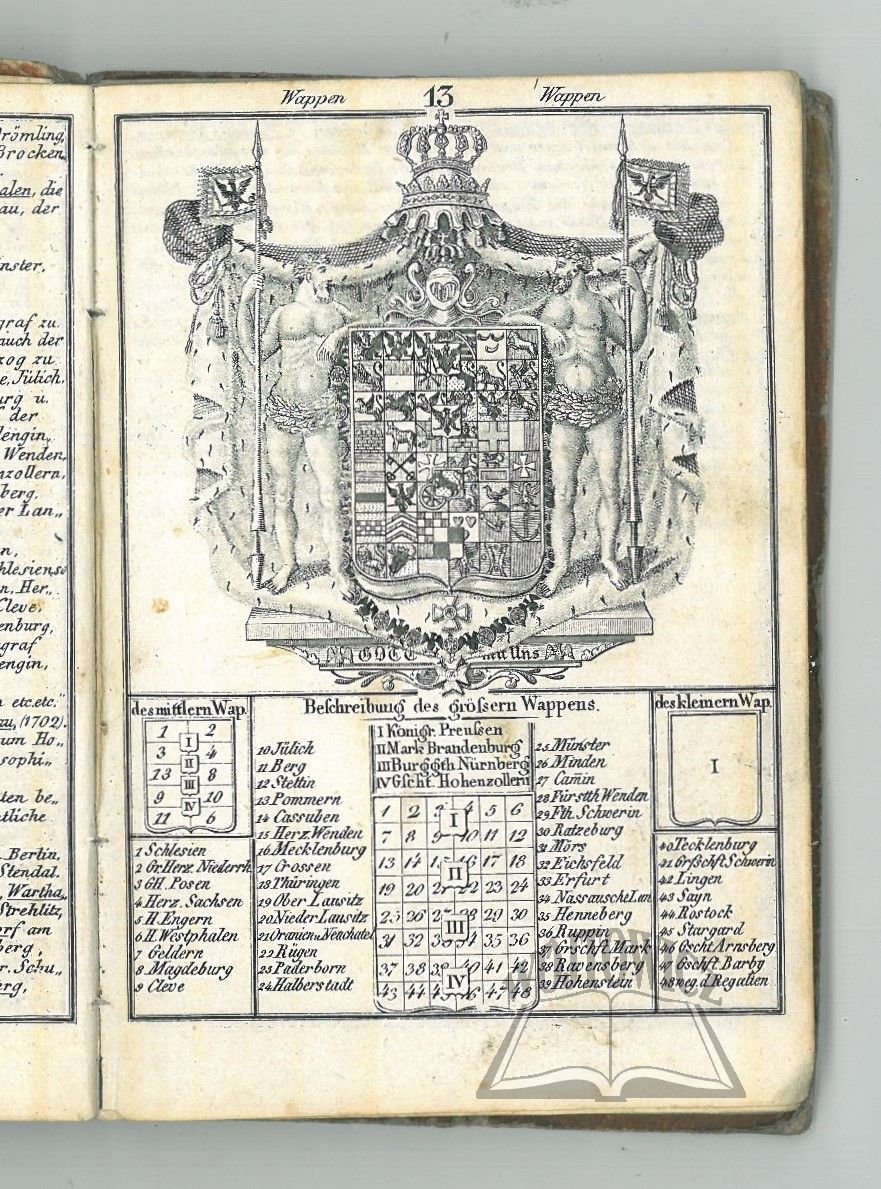 Drömling,
Brocken,
alen, die
au, der
nster,
graf zu
auch der
zog zu
e, Jülich,
urg u.
der
lengin,
Wenden,
nzollern,
berg,
er Lan„
n,
hlesiens
n, Her„
Cleve,
enburg,
graf
engin,
n etc. etc."
au, (1702).
um Ho„
sophi„
ten be„
tliche
Berlin,
Stendal.
Wartha,
Strehlitz,
orf am
berg,
r. Schu„
erg,
Wappen 13 Wappen
GOTT
mit Uns
des mittlern Wap.
1 2
I
3 4
II
13 8
III
9 10
IV
11 6
1 Schlesien
2 Gr. Herz. Niederrh.
3 GH. Posen
4 Herz. Sachsen
5 H. Engern
6 H. Westphalen
7 Geldern
8 Magdeburg
9 Cleve
Beschreibung des grössern Wappens.
10 Jülich
11 Berg
12 Stettin
13 Pommern
14 Cassuben
15 Herz. Wenden
16 Mecklenburg
17 Crossen
18 Thüringen
19 Ober Lausitz
20 Nieder Lausitz
21 Oranien u Neuchatel
22 Rügen
23 Paderborn
24 Halberstadt
I Königr. Preussen
II Mark Brandenburg
III Burggth. Nürnberg
IV Gscht. Hohenzollern
1 2 3 4 5 6
I
7 8 9 10 11 12
13 14 15 16 17 18
II
19 20 21 22 23 24
25 26 27 28 29 30
III
31 32 33 34 35 36
37 38 39 40 41 42
IV
43 44 45 46 47 48
25 Münster
26 Minden
27 Cam̃in
28 Fürstth Wenden
29 Fth. Schwerin
30 Ratzeburg
31 Mörs
32 Eichsfeld
33 Erfurt
34 Nassausche Lan
35 Henneberg
36 Ruppin
37 Grschft. Mark
38 Ravensberg
39 Hohenstein
des kleinern Wap.
I
40 Tecklenburg
41 Grfschft Schwerin
42 Lingen
43 Sayn
44 Rostock
45 Stargard
46 Gscht Arnsberg
47 Gschft. Barby
48 weg. d. Regalien